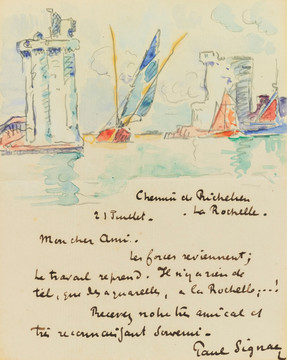 Chemin de Richelieu
21 Juillet - . La Rochelle -
Mon cher Ami -
Les forces reviennent;
le travail reprend. Il n'y a rien de
tel, que des aquarelles, à la Rochelle,..!
Recevez notre très amical et
très reconnaissant souvenir -
Paul Signac